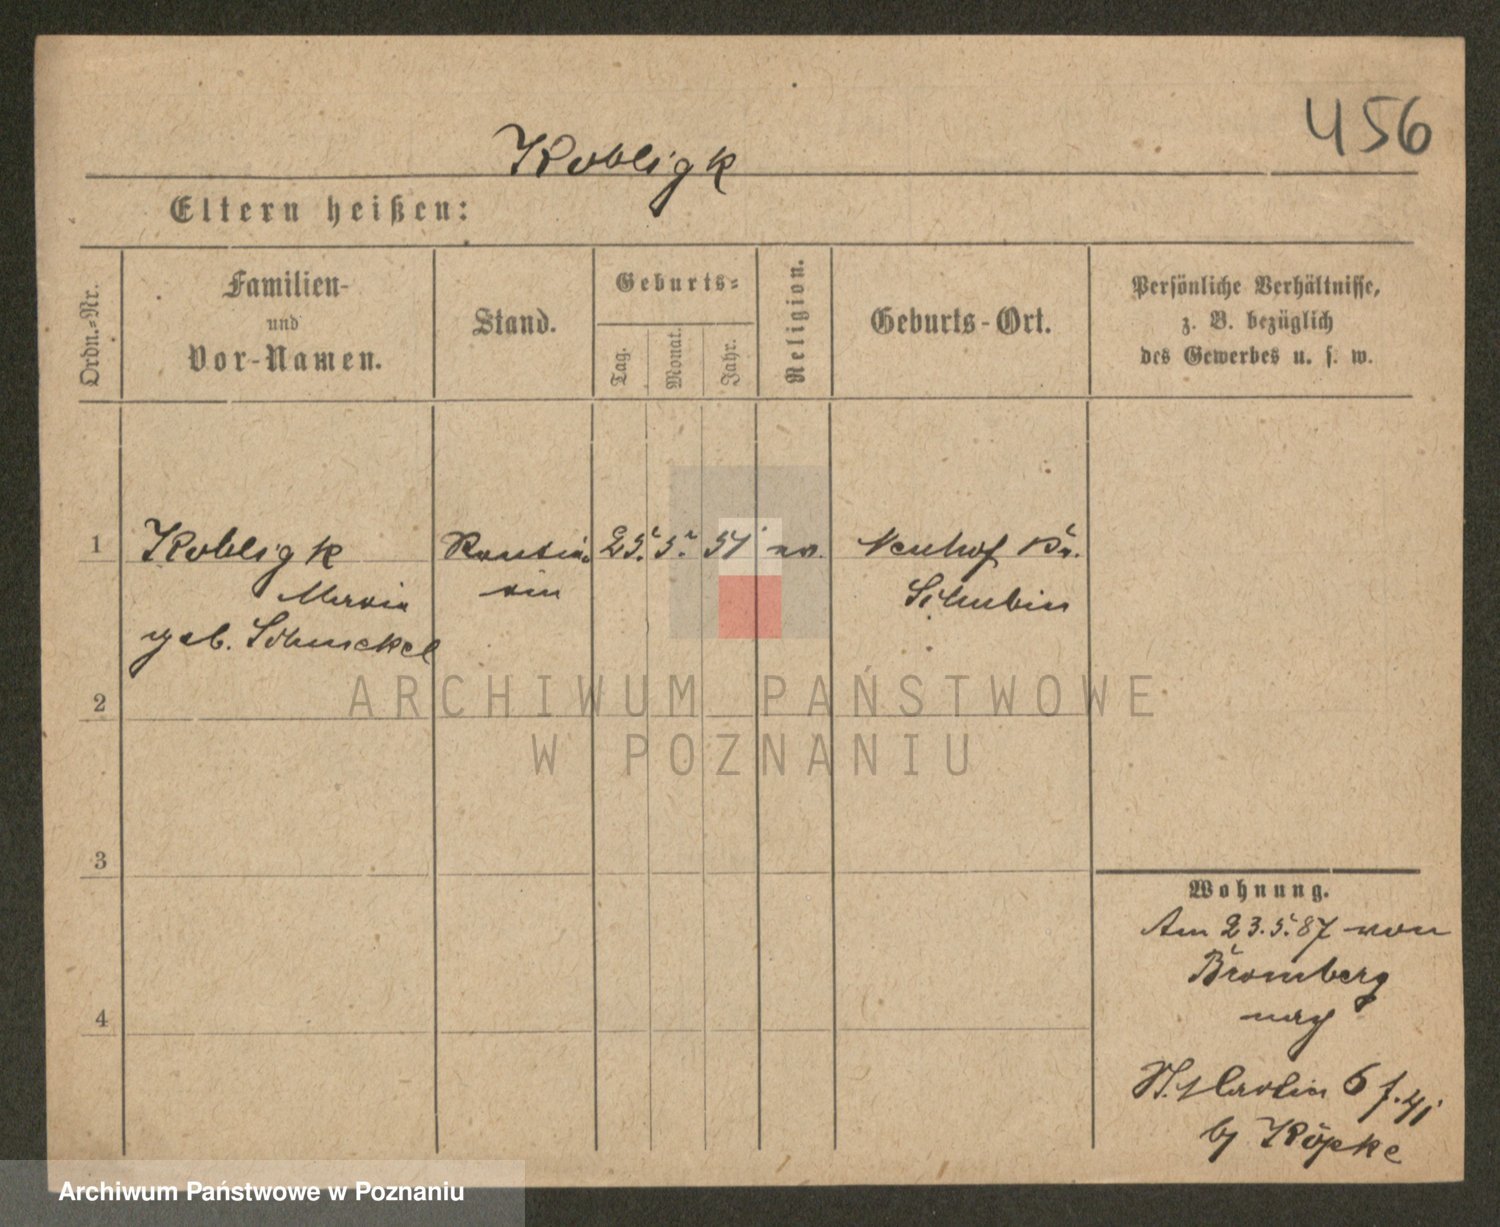 456
Kobligk
Eltern heißen:
Ordn.=Nr.
Familien-
und
Vor-Namen.
Stand.
Geburts=
Tag.
Monat.
Jahr.
Religion.
Geburts-Ort.
Persönliche Verhältnisse,
z. B. bezüglich
des Gewerbes u. s. w.
1
Kobligk
Maria
geb. Schmeckel
25. 5. 51
ev.
Neuhof Kr.
Schubin
2
3
4
Wohnung.
Am 23.5.87 von
Bromberg
nach
St. Martin 6
by Köpke
ARCHIWUM PAŃSTWOWE
W POZNANIU
Archiwum Państwowe w Poznaniu